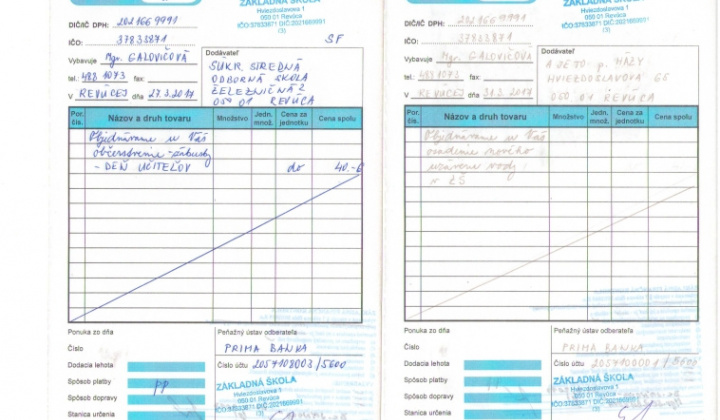 ZÁKLADNÁ ŠKOLA
Hviezdoslavova 1
050 01 Revúca
IČO:37833871 DIČ:2021669991
(3)
DIČ/IČ DPH: 2021669991
IČO: 37833871
SF
Vybavuje Mgr. GALOVIČOVÁ
tel.: 488 1073 fax:
V REVÚCEJ dňa 27.3.2017
Dodávateľ
SÚKR. STREDNÁ
ODBORNÁ ŠKOLA
ŽELEZNIČNÁ 2
050 01 REVÚCA
Por. čís.
Názov a druh tovaru
Množstvo
Jedn. množ.
Cena za jednotku
Cena spolu
Objednávame u Vás
občerstvenie - zákusky
- DEŇ UČITEĽOV do 40.-€
Ponuka zo dňa
Číslo
Dodacia lehota
Spôsob platby PP
Spôsob dopravy
Stanica určenia
Peňažný ústav odberateľa
PRIMA BANKA
Číslo účtu 2057108003/5600
ZÁKLADNÁ ŠKOLA
Hviezdoslavova 1
050 01 Revúca
IČO:37833871 DIČ:2021669991
(3)
ZÁKLADNÁ ŠKOLA
Hviezdoslavova 1
050 01 Revúca
IČO:37833871 DIČ:2021669991
(3)
DIČ/IČ DPH: 2021669991
IČO: 37833871
Vybavuje Mgr. GALOVIČOVÁ
tel.: 488 1073 fax:
V REVÚCEJ dňa
Dodávateľ
HVIEZDOSLAVOVA
050 01 REVÚCA
Por. čís.
Názov a druh tovaru
Množstvo
Jedn. množ.
Cena za jednotku
Cena spolu
Objednávame u Vás
osadenie nového
uzáveru vody
v ZŠ
Ponuka zo dňa
Číslo
Dodacia lehota
Spôsob platby
Spôsob dopravy
Stanica určenia
Peňažný ústav odberateľa
PRIMA BANKA
Číslo účtu
ZÁKLADNÁ ŠKOLA
Hviezdoslavova 1
050 01 Revúca
IČO:37833871 DIČ:2021669991
(3)